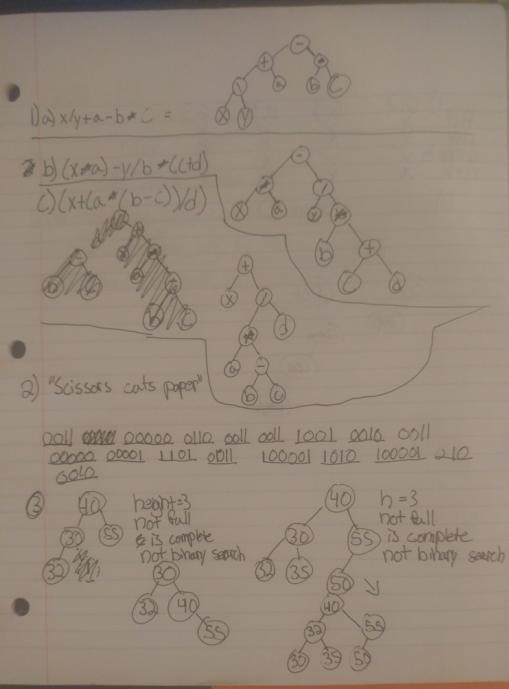 - + * / a b C x y
1) a) x/y + a - b * C =
b) (x * a) - y/b * (C+d)
- * / x a y * b + C d
C) (x + (a * (b - c))/d)
+ x / * d a - b c
2) "Scissors cats paper"
0011 00000 0110 0011 0011 1001 0010 0011
00000 00001 1101 0011 100001 1010 100001
0010
3
40 30 55 32
height=3
not full
is complete
not binary search
30 32 40 55
40 30 55 32 35 50
h = 3
not full
is complete
not binary search
40 32 55 30 35 50